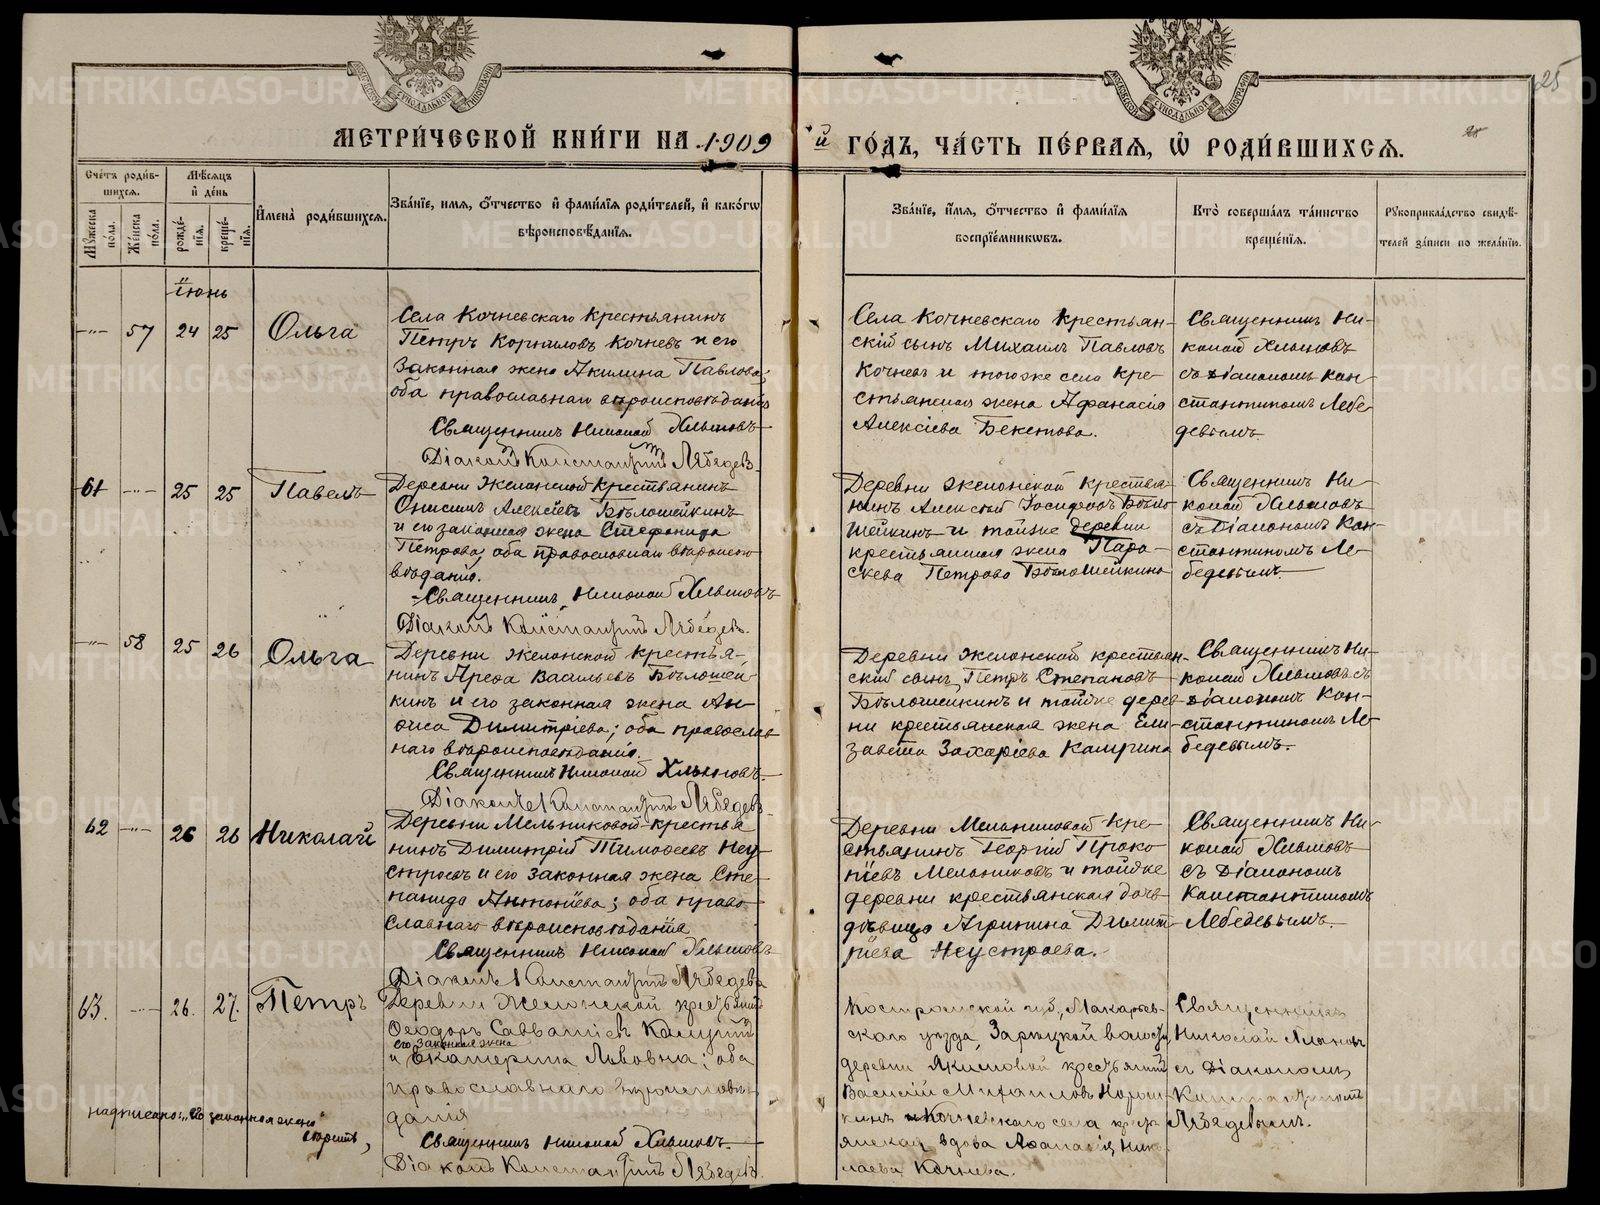 МЕТРИ́ЧЕСКОЙ КНИ́ГИ НА 1909
й ГО́ДЪ, ЧА́СТЬ ПЕ́РВАЯ, Ѡ҆ РОДИ́ВШИХСЯ.
25
Сче́тъ роди́в-
шихся.
Мѣ́сяцъ
и҆ де́нь
Мꙋ́жеска
по́ла.
Же́нска
по́ла.
рожде́-
нїѧ.
креще́-
нїѧ.
И҆мена̀ роди́вшихся.
Зва́нїе, имѧ, ѻ҆́тчество и҆ фами́лїѧ роди́телей, и҆ како́гѡ
вѣроисповѣ́данїѧ.
Зва́нїе, и҆́мѧ, ѻ҆́тчество и҆ фами́лїѧ
воспрїе́мникѡвъ.
Кто̀ соверша́лъ та́инство
креще́нїѧ.
Рꙋкоприкла́дство свидѣ́-
телей за́писи по жела́нїю.
Іюнь
-"- 57 24 25 Ольга
Села Кочневскаго крестьянинъ
Петръ Корниловъ Кочневъ и его
законная жена Акилина Павлова;
оба православнаго вѣроисповѣданія
Священникъ Николай Хлыновъ
Діаконъ Константинъ Лебедевъ
Села Кочневскаго крестьян-
скій сынъ Михаилъ Павловъ
Кочневъ и тогоже села кре-
стьянская жена Афанасія
Алексіева Бекетова.
Священникъ Ни-
колай Хлыновъ
съ діакономъ Кон-
стантиномъ Лебе-
девымъ
61 -"- 25 25 Павелъ
Деревни Желонской крестьянинъ
Онисимъ Алексіевъ Бѣлошейкинъ
и его законная жена Стефанида
Петрова; оба православнаго вѣроиспо-
вѣданія.
Священникъ Николай Хлыновъ
Діаконъ Константинъ Лебедевъ.
Деревни Желонской крестья-
нинъ Алексѣй Іосифовъ Бѣло-
шейкинъ и тойже деревни
крестьянская жена Пара-
скева Петрова Бѣлошейкина
Священникъ Ни-
колай Хлыновъ
съ Діакономъ Кон-
стантиномъ Ле-
бедевымъ.
-"- 58 25 26 Ольга
Деревни Желонской крестья-
нинъ Арефа Васильевъ Бѣлошей-
кинъ и его законная жена Ан-
фиса Димитріева; оба православ-
наго вѣроисповѣданія.
Священникъ Николай Хлыновъ.
Діаконъ Константинъ Лебедевъ
Деревни Желонской крестьян-
скій сынъ Петръ Степановъ
Бѣлошейкинъ и тойже дерев-
ни крестьянская жена Ели-
завета Захаріева Кашрина
Священникъ Ни-
колай Хлыновъ съ
діакономъ Кон-
стантиномъ Ле-
бедевымъ.
62 -"- 26 26 Николай
Деревни Мельниковой крестья
нинъ Димитрій Тимофеевъ Неу-
строевъ и его законная жена Сте-
панида Антоніева; оба право-
славнаго вѣроисповѣданія
Священникъ Николай Хлыновъ
Діаконъ Константинъ Лебедевъ
Деревни Мельниковой кре-
стьянинъ Георгій Проко-
піевъ Мельниковъ и тойже
деревни крестьянская дочь
дѣвица Агрипина Димит-
ріева Неустроева.
Священникъ Ни-
колай Хлыновъ
съ Діакономъ
Константиномъ
Лебедевымъ.
63. -"- 26. 27. Петръ
Деревни Желонской крестьянинъ
Ѳеодоръ Савватіевъ
его законная жена
и Екатерина Львовна; оба
православнаго вѣроисповѣ-
данія
Священникъ Николай Хлыновъ.
Діаконъ Константинъ Лебедевъ.
надписано: „его законная жена"
вѣрить,
Костромской губ., Макарьев-
скаго уѣзда, Зарецкой волости,
деревни Якимовой крестьянинъ
Василій Михаиловъ
кинъ и Кочневскаго села крест-
янская вдова Афанасія Нико-
лаева Кочнева.
Священникъ
Николай Хлыновъ
съ Діакономъ
Константиномъ
Лебедевымъ.
METRIKI.GASO-URAL.RU